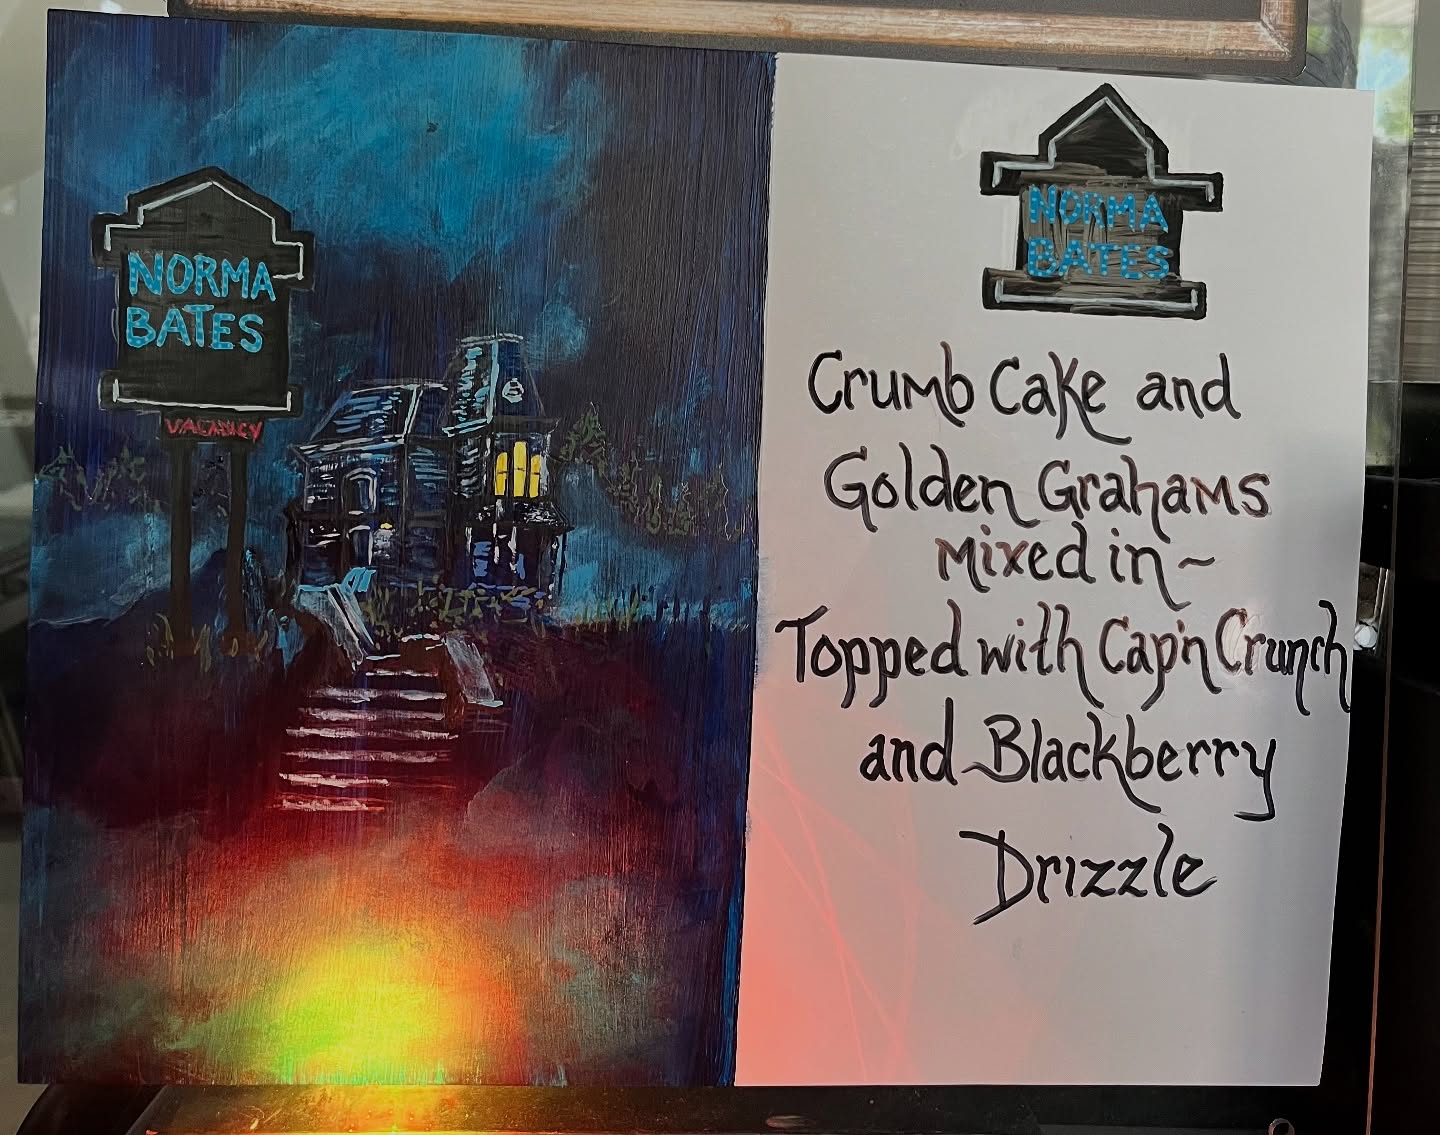 NORMA
BATES
VACANCY
NORMA
BATES
Crumb Cake and
Golden Grahams
mixed in~
Topped with Cap'n Crunch
and Blackberry
Drizzle